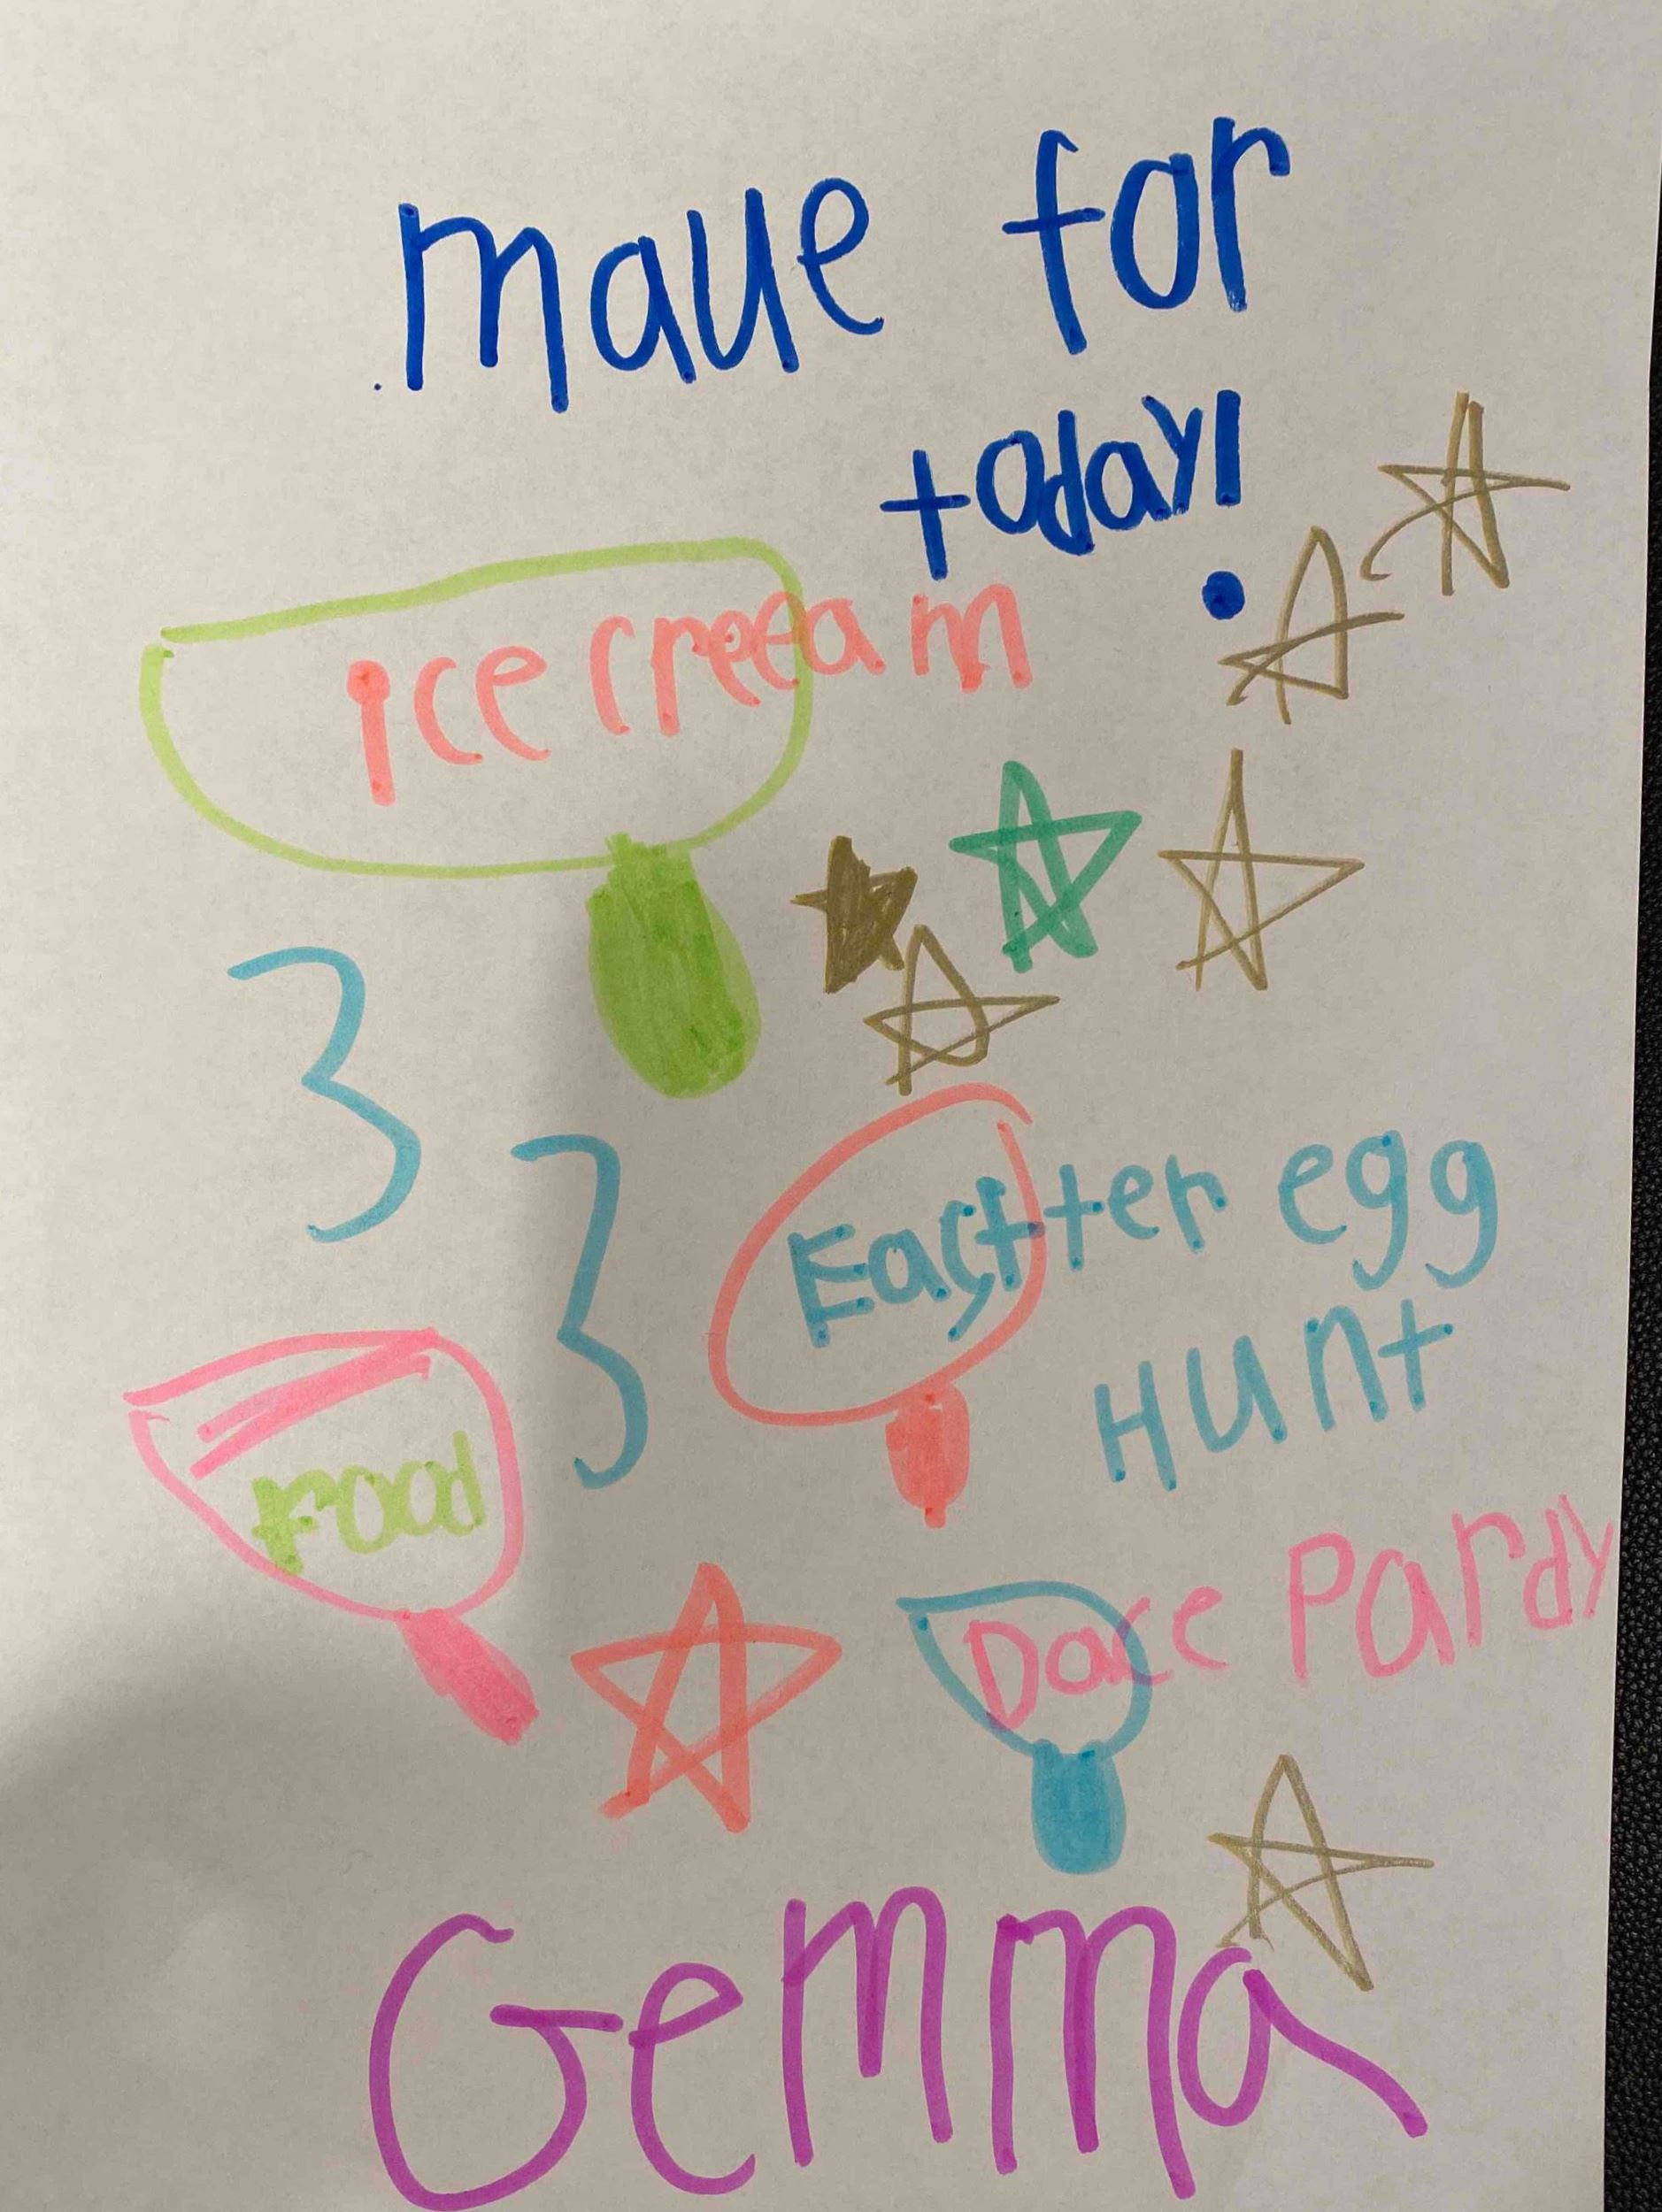 maue for
today!
ice creeam
3
3
Eastter egg
Hunt
Food
Dace Pardy
Gemma